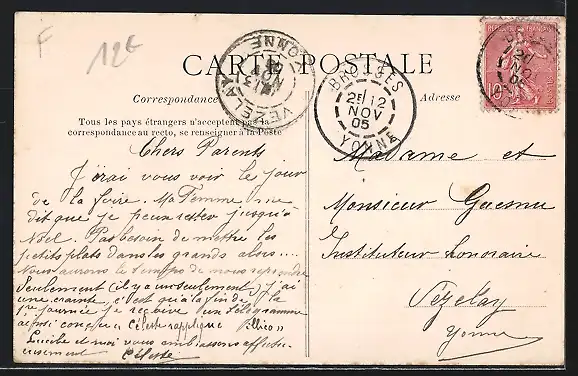 F
12€
CARTE POSTALE
Correspondance
Adresse
Tous les pays étrangers n'acceptent pas la
correspondance au recto, se renseigner à la Poste
VEZELAY YONNE
BROSSES
2E 12
NOV
05
YONNE
10
Chers Parents
J'irai vous voir le jour
de la foire. Ma Femme me
dit que je peux rester jusqu'à
Noël. Pas besoin de mettre les
petits plats dans les grands alors....
Nous aurons le temps de nous reprendre
Seulement (il y a un seulement) j'ai
une crainte, c'est qu'à la fin de la
1re journée je reçoive un télégramme
ainsi conçu « Céleste rapplique illico »
Lucile et moi vous embrassons affectu-
eusement Céleste
Madame et
Monsieur Guesnu
Instituteur honoraire
Vézelay
Yonne